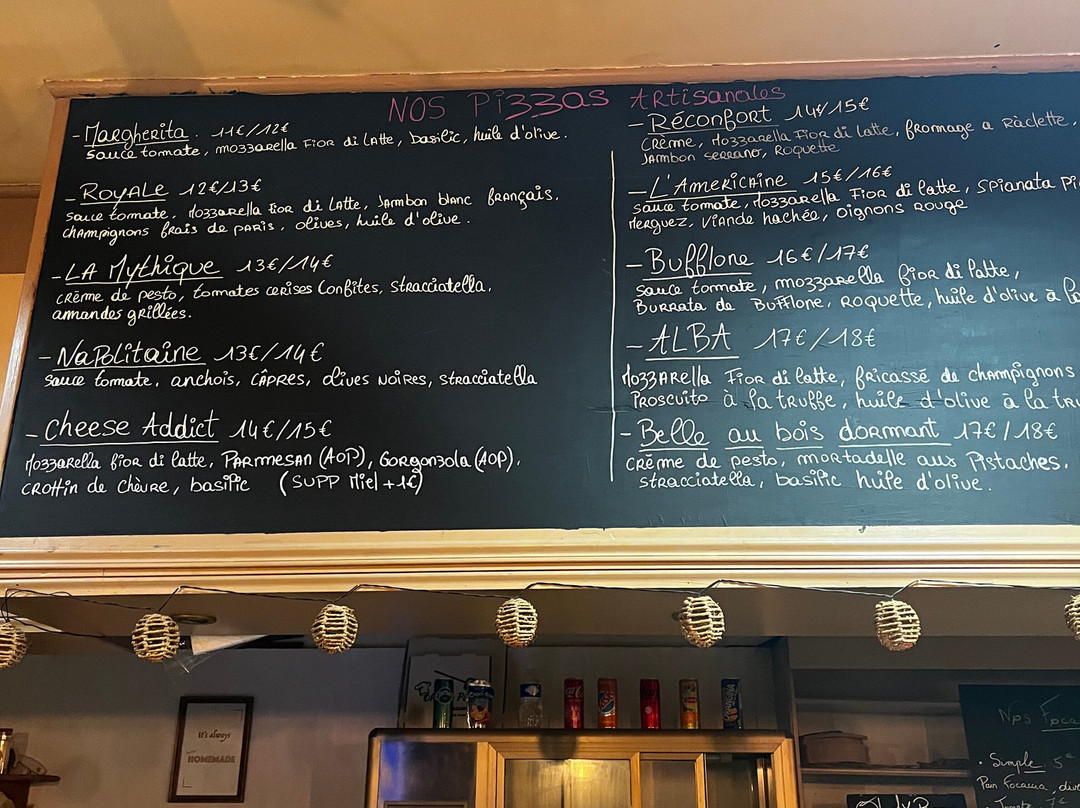 NOS Pizzas Artisanales
- Margherita. 11€/12€
sauce tomate, mozzarella Fior di Latte, basilic, huile d'olive.
- Royale 12€/13€
sauce tomate, Mozzarella Fior di Latte, Jambon blanc français,
champignons frais de paris, olives, huile d'olive.
- LA Mythique 13€/14€
crème de pesto, tomates cerises confites, stracciatella,
amandes grillées.
- Napolitaine 13€/14€
sauce tomate, anchois, câpres, olives noires, stracciatella
- Cheese Addict 14€/15€
Mozzarella fior di latte, Parmesan (AOP), Gorgonzola (AOP),
crottin de chèvre, basilic (SUPP Miel +1€)
- Réconfort 14€/15€
Crème, Mozzarella Fior di latte, fromage a Ràclette,
Jambon serrano, Roquette
- L'Americaine 15€/16€
sauce tomate, Mozzarella Fior di latte, Spianata
Merguez, viande hachée, oignons rouge
- Bufflone 16€/17€
sauce tomate, mozzarella fior di latte,
Burrata de Bufflone, roquette, huile d'olive à
- ALBA 17€/18€
Mozzarella Fior di latte, fricassé de champignons
Proscuito à la truffe, huile d'olive à la
- Belle au bois dormant 17€/18€
crème de pesto, mortadelle aux Pistaches,
stracciatella, basilic huile d'olive.
It's always
HOMEMADE
Nos
• Simple 5€
Pain